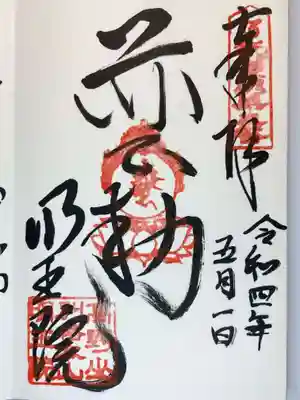 奉拝
令和四年
五月一日
赤不動
明王院